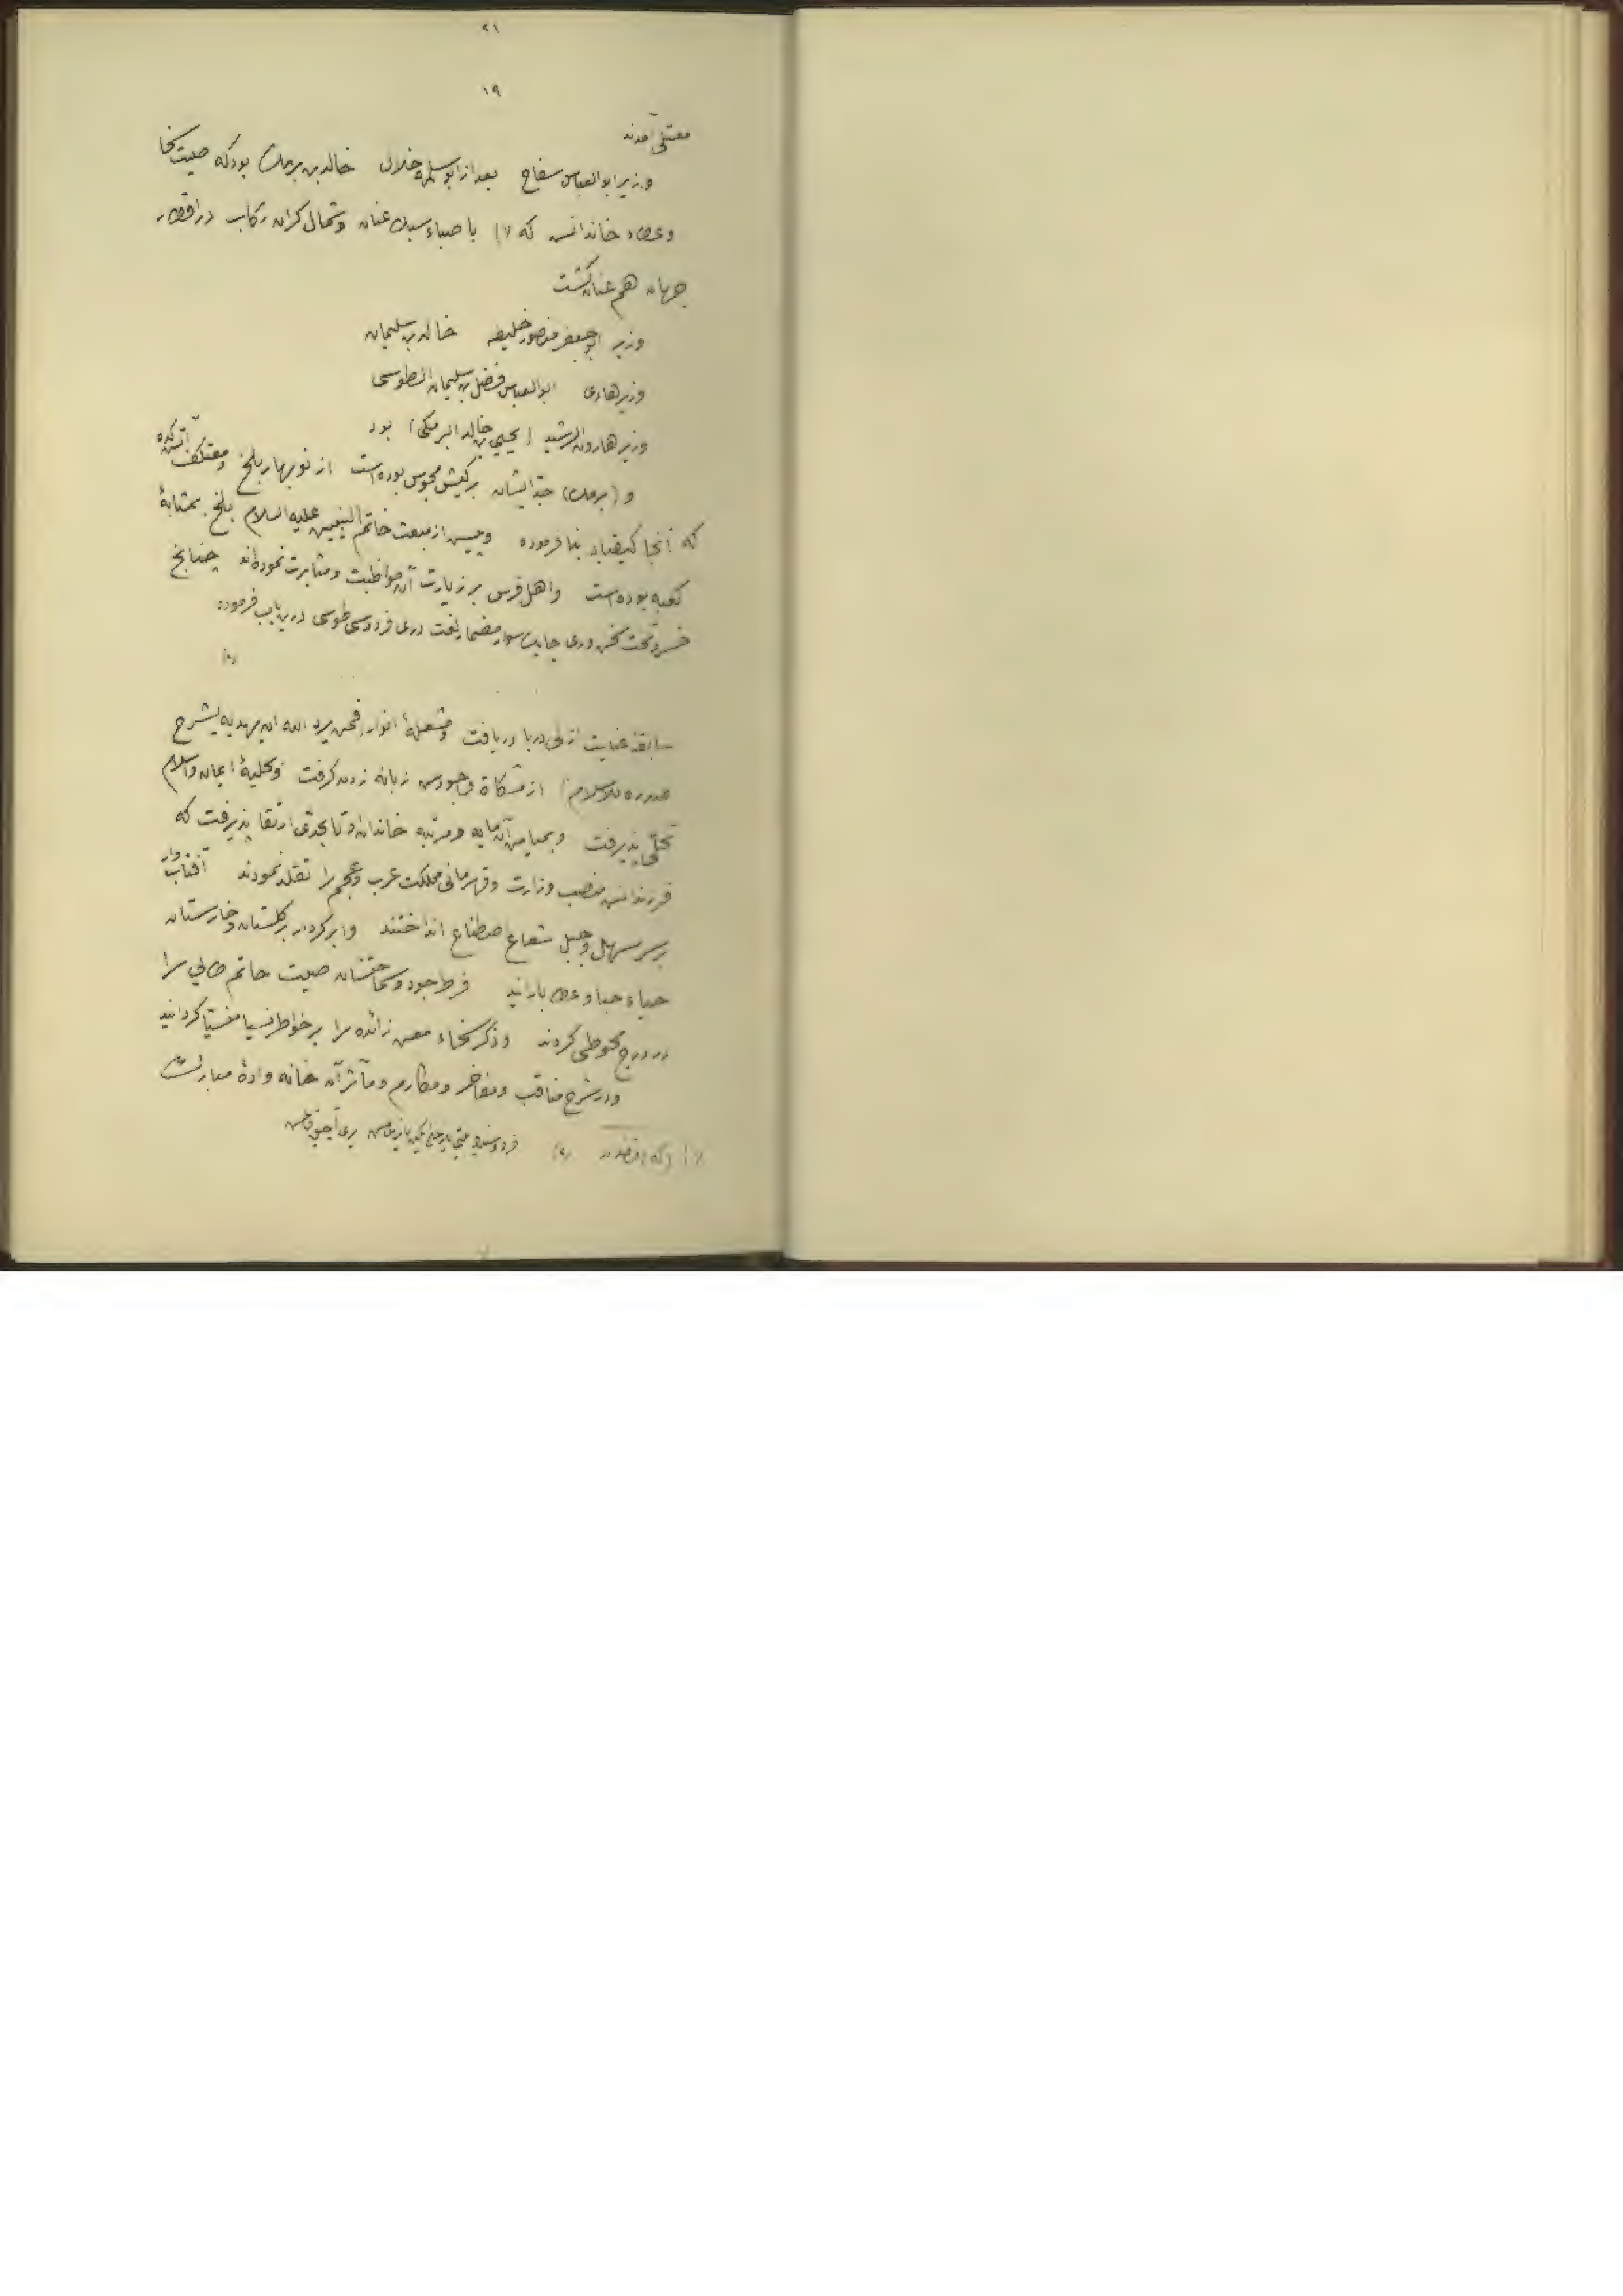 ٢١
١٩
آمدند
وزیر ابوالعباس سفاح بعد از ابوسلمه خلال خالد بن برمک بود که صیت سخا
وعطاء خاندانش که (١) با صباء سبک عنان وشمال گران رکاب در اقطار
جهان هم عنان گشت
وزیر ابوجعفر منصور خلیفه خالد بن سلیمان
وزیر هادی ابوالعباس فضل بن سلیمان الطوسی
وزیر هارون الرشید (یحیی بن خالد البرمکی) بود
و (برمک) جد ایشان بر کیش مجوس بوده است از نوبهار بلخ ومعتکف آتشکده
که آنجا کیقباد بنا فرموده وپیش از مبعث خاتم النبیین علیه السلام بلخ بمثابۀ
کعبه بوده است واهل فرس بر زیارت آن مواظبت ومثابرت نموده‌اند چنانچ
خسرو تخت سخن وری چابک سوار مضمار لغت دری فردوسی طوسی درین باب فرموده
(٢)
سابقۀ عنایت ازلی دریافت ومشعلۀ انوار فمن یرد الله ان یهدیه یشرح
صدره للاسلام) از مشکاة وجودش زبانه زدن گرفت وبحلیۀ ایمان واسلام
تحلی پذیرفت وبمیامن آن پایه ومرتبه خاندان او تا بحدی ارتقا پذیرفت که
فرزندانش منصب وزارت وقهرمانی مملکت عرب وعجم را تقلد نمودند آفتاب وار
بر سر سهل وجبل شعاع اصطناع انداختند وابر کردار بر گلستان وخارستان
حیاء حبا وعطا بارانید فرط جود وسماحتشان صیت حاتم طائی را
در درج مطوی کردند وذکر سخاء معن زائده را بر خواطر نسیا منسیا گردانید
ودر شرح مناقب ومفاخر ومکارم ومآثر آن خانه وادۀ مبارک
(١) (که) (٢)